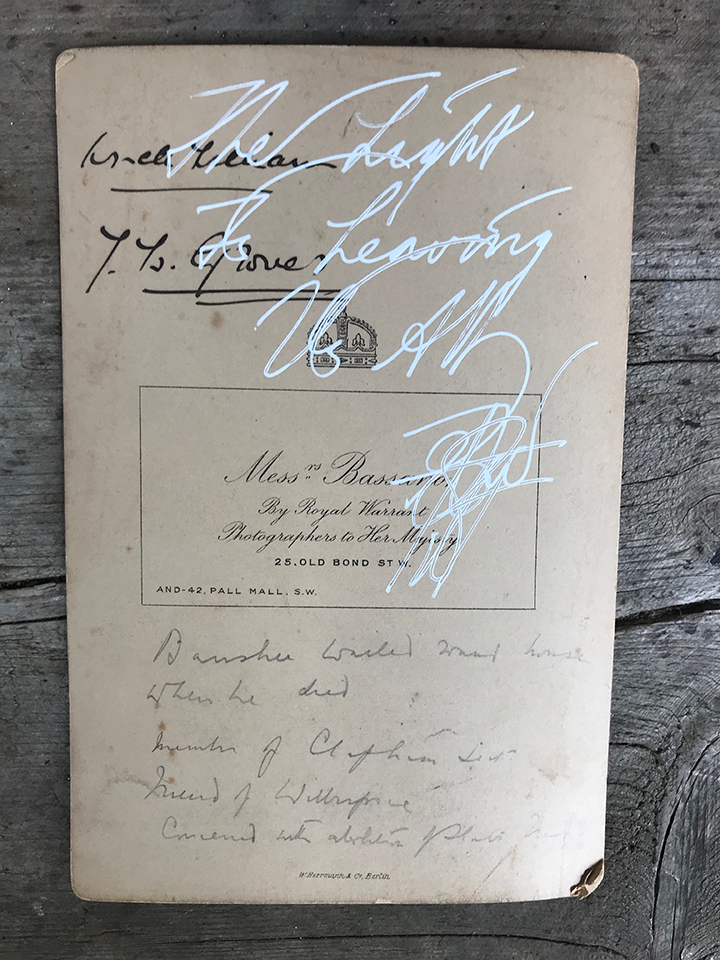 The Light
Is Leaving
Us All
Uncle William
T. B. Grover
Messrs Bassano.
By Royal Warrant
Photographers to Her Majesty
25, OLD BOND ST W.
AND-42, PALL MALL, S.W.
Banshee wailed round house
when he died
member of Clapham Sect
Friend of Wilberforce
Concerned with abolition
W. Herrmann & Co, Berlin.